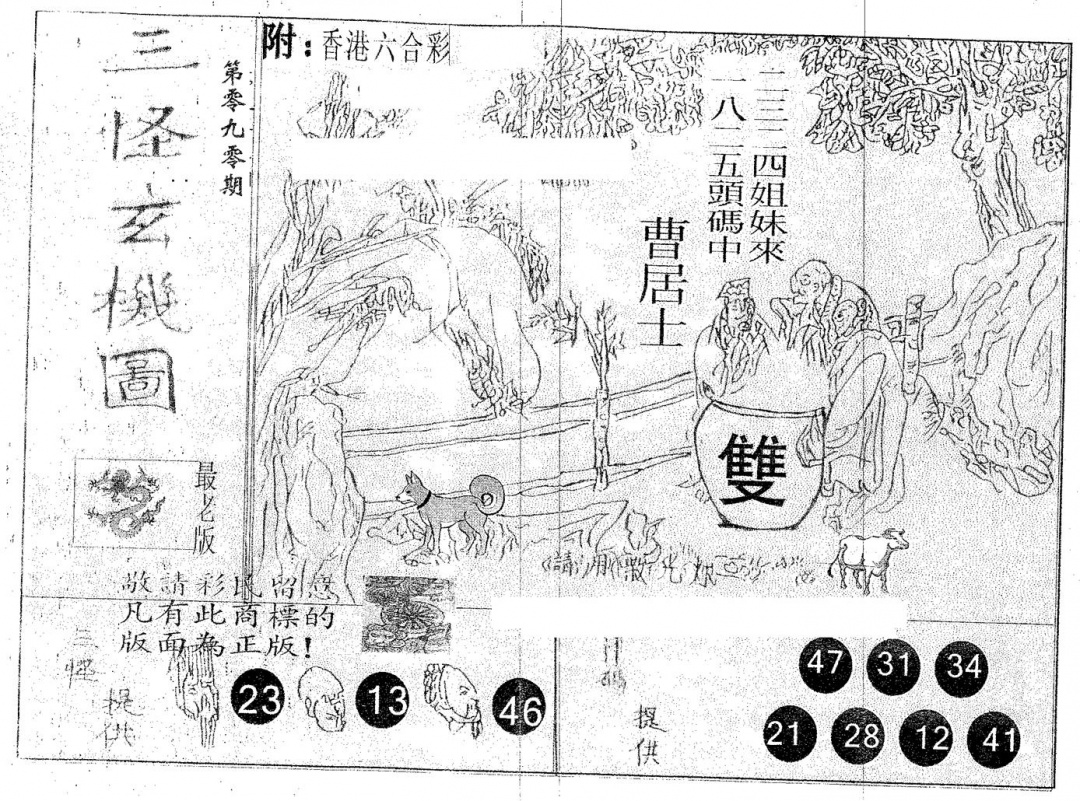 三怪玄機圖
第零九零期
附：香港六合彩
一二三二四姐妹來
一八二五頭碼中
曹居士
雙
最老版
敬請彩民留意
凡有此商標的
版面為正版！
三怪
提供
23
13
46
提供
47 31 34
21 28 12 41